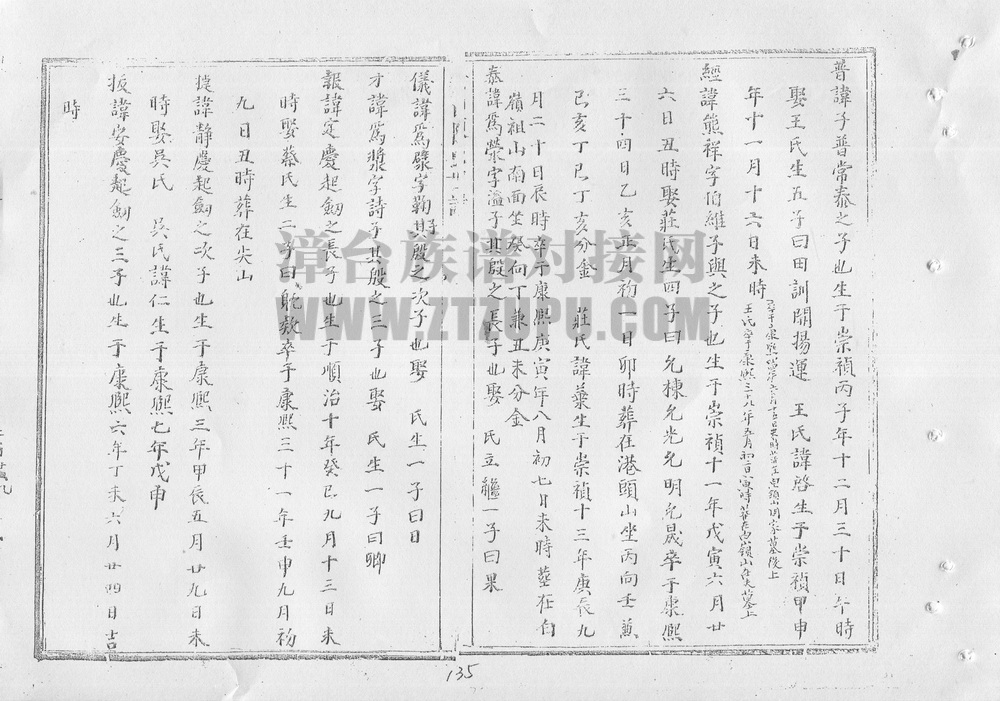 普諱子普常泰之子也生于崇禎丙子年十二月三十日午時
娶王氏生五子曰田訓開揚運 王氏諱啓生于崇禎甲申
年十一月十六日未時
王氏卒于康熙三十九年五月初二日寅時葬在
經諱熊祥字伯維子與之子也生于崇禎十一年戊寅六月廿
六日丑時娶莊氏生四子曰允棟允光允明允晟卒于康熙
三十四日乙亥正月初一日卯時葬在港頭山坐丙向壬兼
己亥丁巳丁亥分金 莊氏諱藁生于崇禎十三年庚辰九
月二十日辰時卒于康熙庚寅年八月初七日未時葬在伯
嶺祖山南面坐癸向丁兼丑未分金
泰諱為榮字溢子其殷之長子也娶 氏立繼一子曰果
儀諱為襞字鞠子其殷之次子也娶 氏生一子曰日
才諱為漿字詩子其殷之三子也娶 氏生一子曰卿
報諱定慶起劒之長子也生于順治十年癸巳九月十三日未
時娶蔡氏生二子曰 欸卒于康熙三十一年壬申九月初
九日丑時葬在尖山
諱靜慶起劒之次子也生于康熙三年甲辰五月廿九日未
時娶吳氏 吳氏諱仁生于康熙七年戊申
振諱安慶起劒之三子也生于康熙六年丁未六月廿四日吉
時
135
漳台族谱对接网
WWW.ZTZUPU.COM